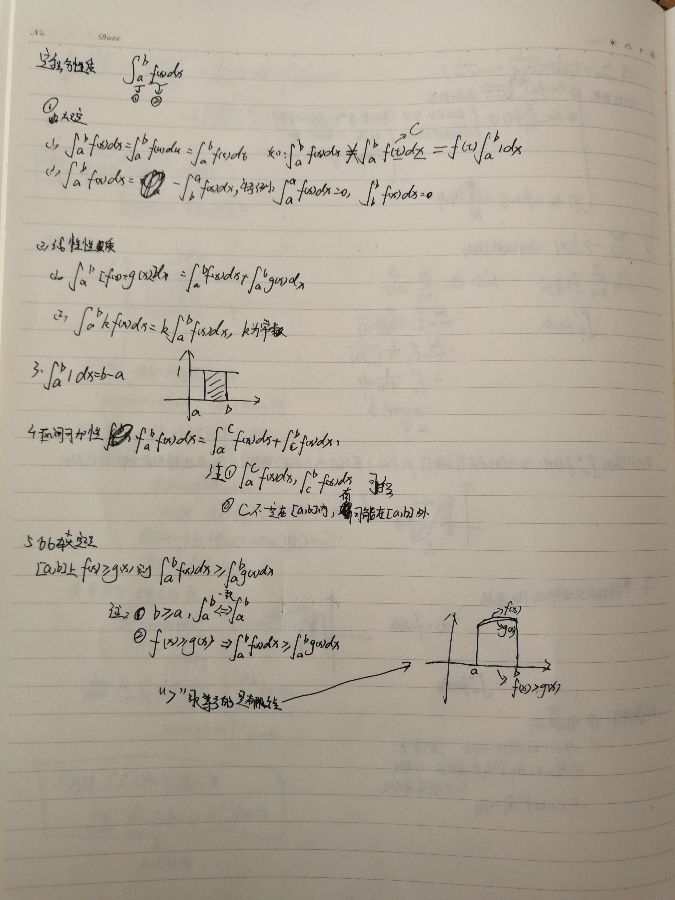 No Date
定积分性质 ∫_a^b f(x)dx
① ②
①
(1) ∫_a^b f(x)dx = ∫_a^b f(u)du = ∫_a^b f(t)dt 如: ∫_a^b f(x)dx ≠ ∫_a^b f(t)dx = f(t)∫_a^b 1dx
C
(2) ∫_a^b f(x)dx = -∫_b^a f(x)dx, 特别: ∫_a^a f(x)dx=0, ∫_b^b f(x)dx=0
2, 线性性质
(1) ∫_a^b [f(x)+g(x)]dx = ∫_a^b f(x)dx + ∫_a^b g(x)dx
(2) ∫_a^b k f(x)dx = k∫_a^b f(x)dx, k为常数
3. ∫_a^b 1 dx = b-a
1
a b
4 区间可加性 ∫_a^b f(x)dx = ∫_a^c f(x)dx + ∫_c^b f(x)dx,
注① ∫_a^c f(x)dx, ∫_c^b f(x)dx
② C不一定在[a,b]内, 有可能在[a,b]外
5 比较定理
[a,b]上 f(x)≥g(x), 则 ∫_a^b f(x)dx ≥ ∫_a^b g(x)dx
注: ① b≥a, ∫_a^b ⇔ ∫_a^b
② f(x)≥g(x) ⇒ ∫_a^b f(x)dx ≥ ∫_a^b g(x)dx
f(x)
g(x)
a b
f(x)≥g(x)